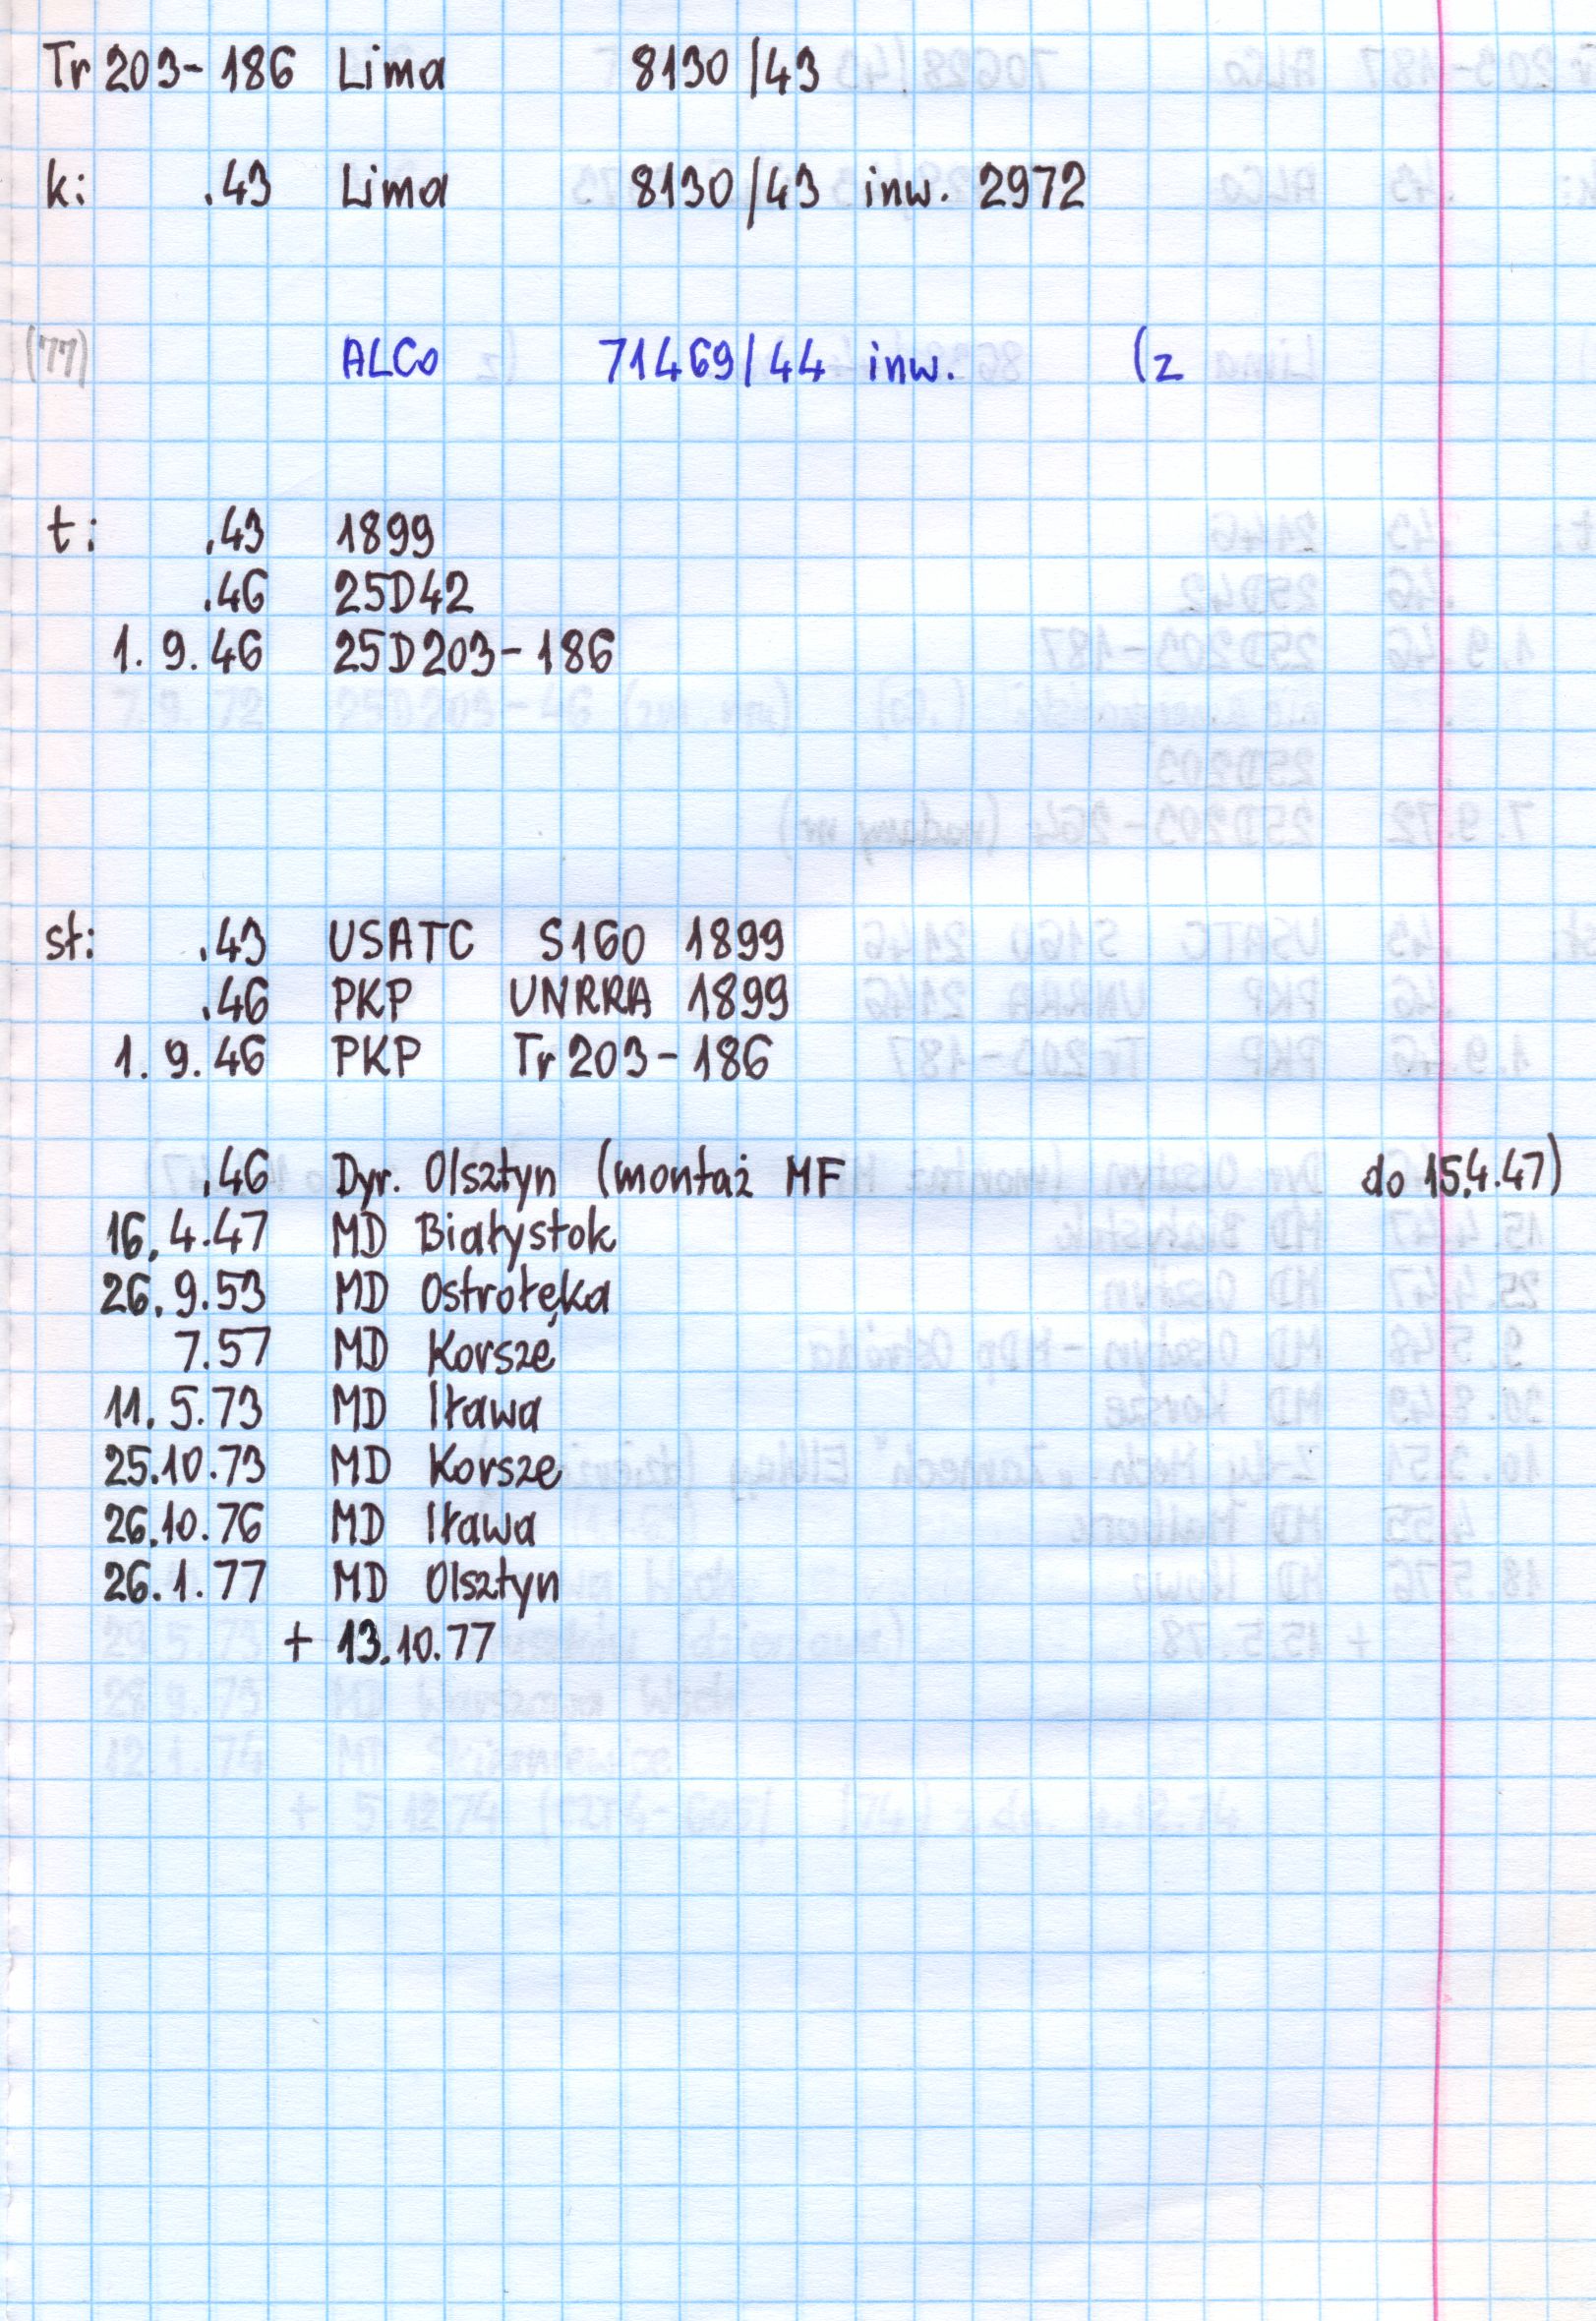 Tr 203-186 Lima 8130/43
k: .43 Lima 8130/43 inw. 2972
(77) ALCo 71469/44 inw. (z
t: .43 1899
.46 25D42
1. 9. 46 25D203-186
st: .43 USATC S160 1899
.46 PKP UNRRA 1899
1. 9. 46 PKP Tr 203-186
.46 Dyr. Olsztyn (montaż MF do 15.4.47)
16. 4.47 MD Białystok
26. 9.53 MD Ostrołęka
7.57 MD Korsze
11. 5.73 MD Iława
25.10.73 MD Korsze
26.10.76 MD Iława
26. 1. 77 MD Olsztyn
+ 13.10.77